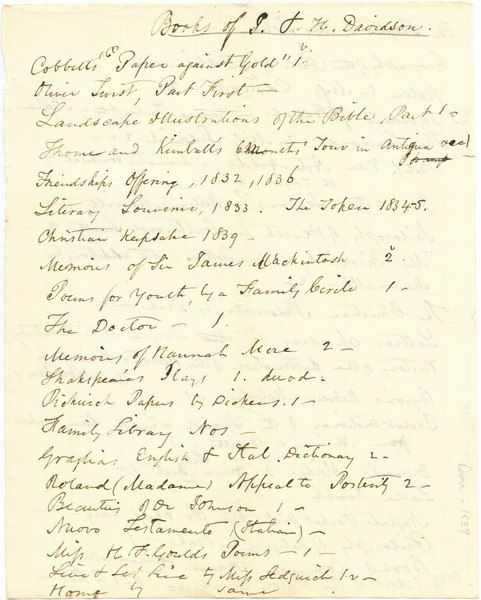 Books of I. & H. Davidson.
Cobbett's "Paper against Gold" 1 v.
Oliver Twist, Part First —
Landscape Illustrations of the Bible, Part 1 —
Thome and Kimball's 6 months' Tour in Antigua &c
Friendships Offering, 1832, 1836
Literary Souvenir, 1833. The Token 1834-5.
Christian Keepsake 1839 —
Memoirs of Sir James Mackintosh 2 v
Poems for Youth, by a Family Circle 1 —
The Doctor — 1.
Memoirs of Hannah More 2 —
Shakspeare's Plays 1. duod —
Pickwick Papers by Dickens. 1 —
Family Library Nos —
Graglias English & Ital. Dictionary 2 —
Roland (Madame) Appeal to Posterity 2 —
Beauties of Dr Johnson 1 —
Nuovo Testamento (Italian) —
Miss H F Goulds Poems — 1
Live & Let Live by Miss Sedgwick 1 v —
Home by same